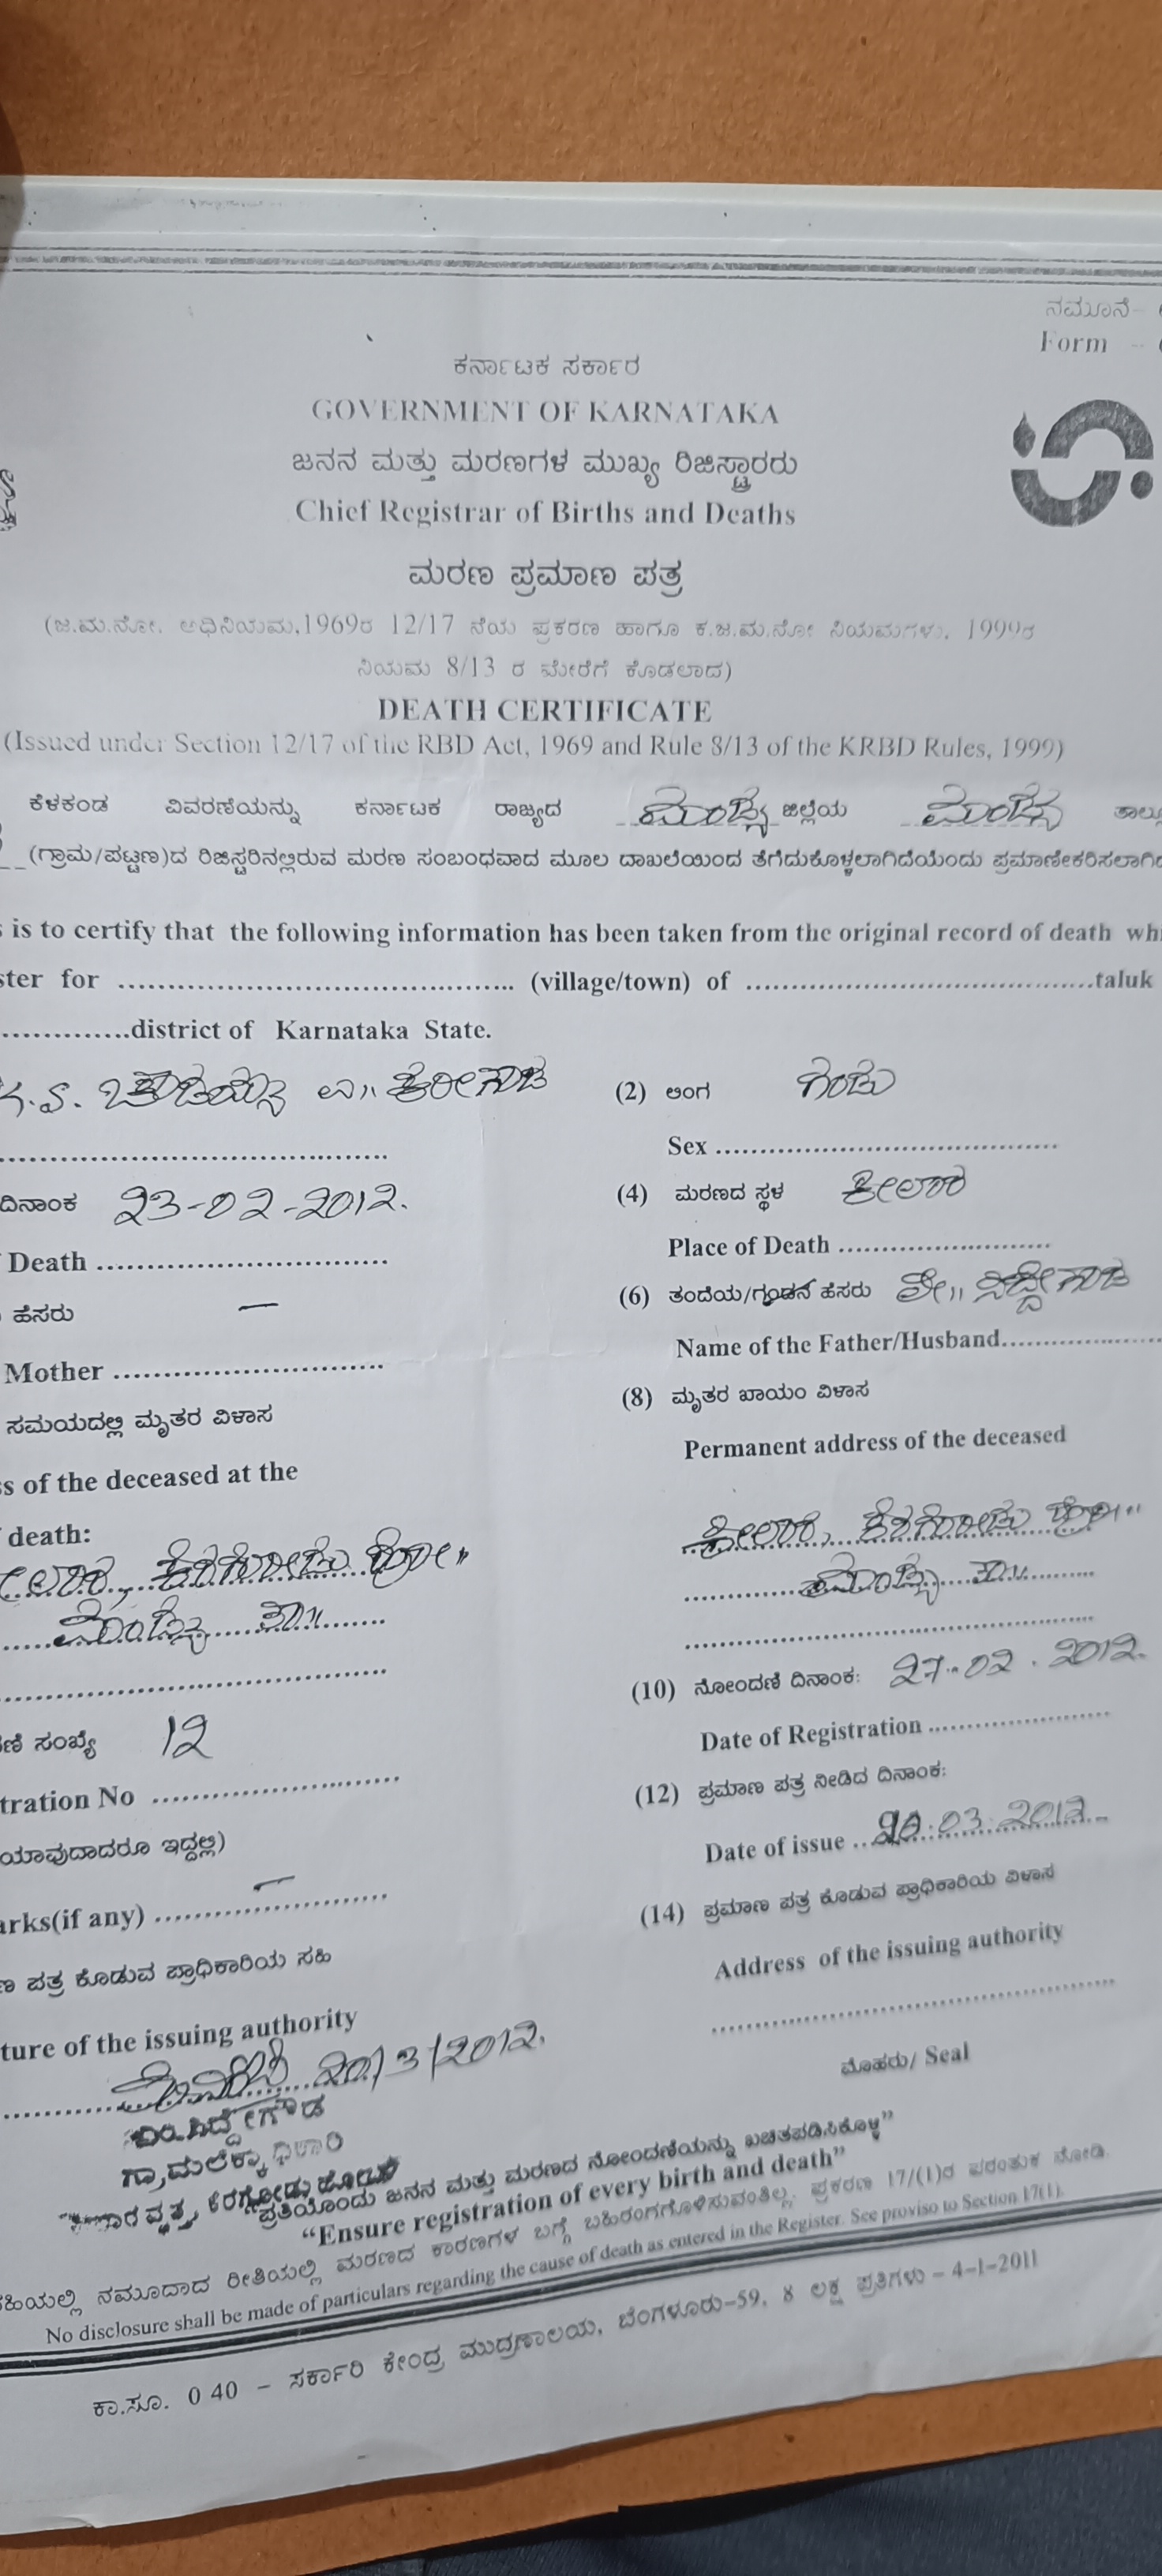 ನಮೂನೆ-
Form -
ಕರ್ನಾಟಕ ಸರ್ಕಾರ
GOVERNMENT OF KARNATAKA
ಜನನ ಮತ್ತು ಮರಣಗಳ ಮುಖ್ಯ ರಿಜಿಸ್ಟ್ರಾರರು
Chief Registrar of Births and Deaths
ಮರಣ ಪ್ರಮಾಣ ಪತ್ರ
(ಜ.ಮ.ನೋ. ಅಧಿನಿಯಮ,1969ರ 12/17 ನೆಯ ಪ್ರಕರಣ ಹಾಗೂ ಕ.ಜ.ಮ.ನೋ ನಿಯಮಗಳು, 1999ರ
ನಿಯಮ 8/13 ರ ಮೇರೆಗೆ ಕೊಡಲಾದ)
DEATH CERTIFICATE
(Issued under Section 12/17 of the RBD Act, 1969 and Rule 8/13 of the KRBD Rules, 1999)
ಕೆಳಕಂಡ ವಿವರಣೆಯನ್ನು ಕರ್ನಾಟಕ ರಾಜ್ಯದ ಮಂಡ್ಯ ಜಿಲ್ಲೆಯ ಮಂಡ್ಯ ತಾಲ್ಲೂ
(ಗ್ರಾಮ/ಪಟ್ಟಣ)ದ ರಿಜಿಸ್ಟರಿನಲ್ಲಿರುವ ಮರಣ ಸಂಬಂಧವಾದ ಮೂಲ ದಾಖಲೆಯಿಂದ ತೆಗೆದುಕೊಳ್ಳಲಾಗಿದೆಯೆಂದು ಪ್ರಮಾಣೀಕರಿಸಲಾಗಿದೆ
is to certify that the following information has been taken from the original record of death wh
ster for .......... (village/town) of .......... taluk
.......... district of Karnataka State.
(2) ಲಿಂಗ ಗಂಡು
Sex ..........
ದಿನಾಂಕ 23-02-2012.
(4) ಮರಣದ ಸ್ಥಳ ಕೀಲಾರ
Death ..........
Place of Death ..........
ಹೆಸರು —
(6) ತಂದೆಯ/ಗಂಡನ ಹೆಸರು ಲೇ॥ ಸಿದ್ದೇಗೌಡ
Mother ..........
Name of the Father/Husband ..........
ಸಮಯದಲ್ಲಿ ಮೃತರ ವಿಳಾಸ
(8) ಮೃತರ ಖಾಯಂ ವಿಳಾಸ
s of the deceased at the
Permanent address of the deceased
death:
ಕೀಲಾರ, ಕೆರಗೋಡು ಹೋ॥
ಮಂಡ್ಯ ತಾ॥
ಕೀಲಾರ, ಕೆರಗೋಡು ಹೋ॥
ಮಂಡ್ಯ ತಾ॥
(10) ನೋಂದಣಿ ದಿನಾಂಕ: 27-02-2012.
ಣಿ ಸಂಖ್ಯೆ 12
Date of Registration ..........
tration No ..........
(12) ಪ್ರಮಾಣ ಪತ್ರ ನೀಡಿದ ದಿನಾಂಕ:
ಯಾವುದಾದರೂ ಇದ್ದಲ್ಲಿ)
Date of issue 20.03.2012
arks(if any) —
(14) ಪ್ರಮಾಣ ಪತ್ರ ಕೊಡುವ ಪ್ರಾಧಿಕಾರಿಯ ವಿಳಾಸ
ಣ ಪತ್ರ ಕೊಡುವ ಪ್ರಾಧಿಕಾರಿಯ ಸಹಿ
Address of the issuing authority
ture of the issuing authority
20/3/2012.
ಮೊಹರು/ Seal
ಸಿದ್ದೇಗೌಡ
ಗ್ರಾಮಲೆಕ್ಕಾಧಿಕಾರಿ
ವೃತ್ತ, ಕೆರಗೋಡು ಹೋಬಳಿ
"ಪ್ರತಿಯೊಂದು ಜನನ ಮತ್ತು ಮರಣದ ನೋಂದಣಿಯನ್ನು ಖಚಿತಪಡಿಸಿಕೊಳ್ಳಿ"
"Ensure registration of every birth and death"
ಹಿಯಲ್ಲಿ ನಮೂದಾದ ರೀತಿಯಲ್ಲಿ ಮರಣದ ಕಾರಣಗಳ ಬಗ್ಗೆ ಬಹಿರಂಗಗೊಳಿಸುವಂತಿಲ್ಲ. ಪ್ರಕರಣ 17/(1)ರ ಪರಂತುಕ ನೋಡಿ.
No disclosure shall be made of particulars regarding the cause of death as entered in the Register. See proviso to Section 17(1).
ಕಾ.ಸೂ. 0 40 - ಸರ್ಕಾರಿ ಕೇಂದ್ರ ಮುದ್ರಣಾಲಯ, ಬೆಂಗಳೂರು-59, 8 ಲಕ್ಷ ಪ್ರತಿಗಳು - 4-1-2011